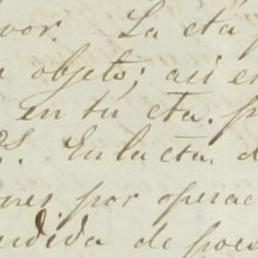 vor. La cta
objeto; asi en
en tu cta. p
S. En la cta. d
ones por operac
endida de poes